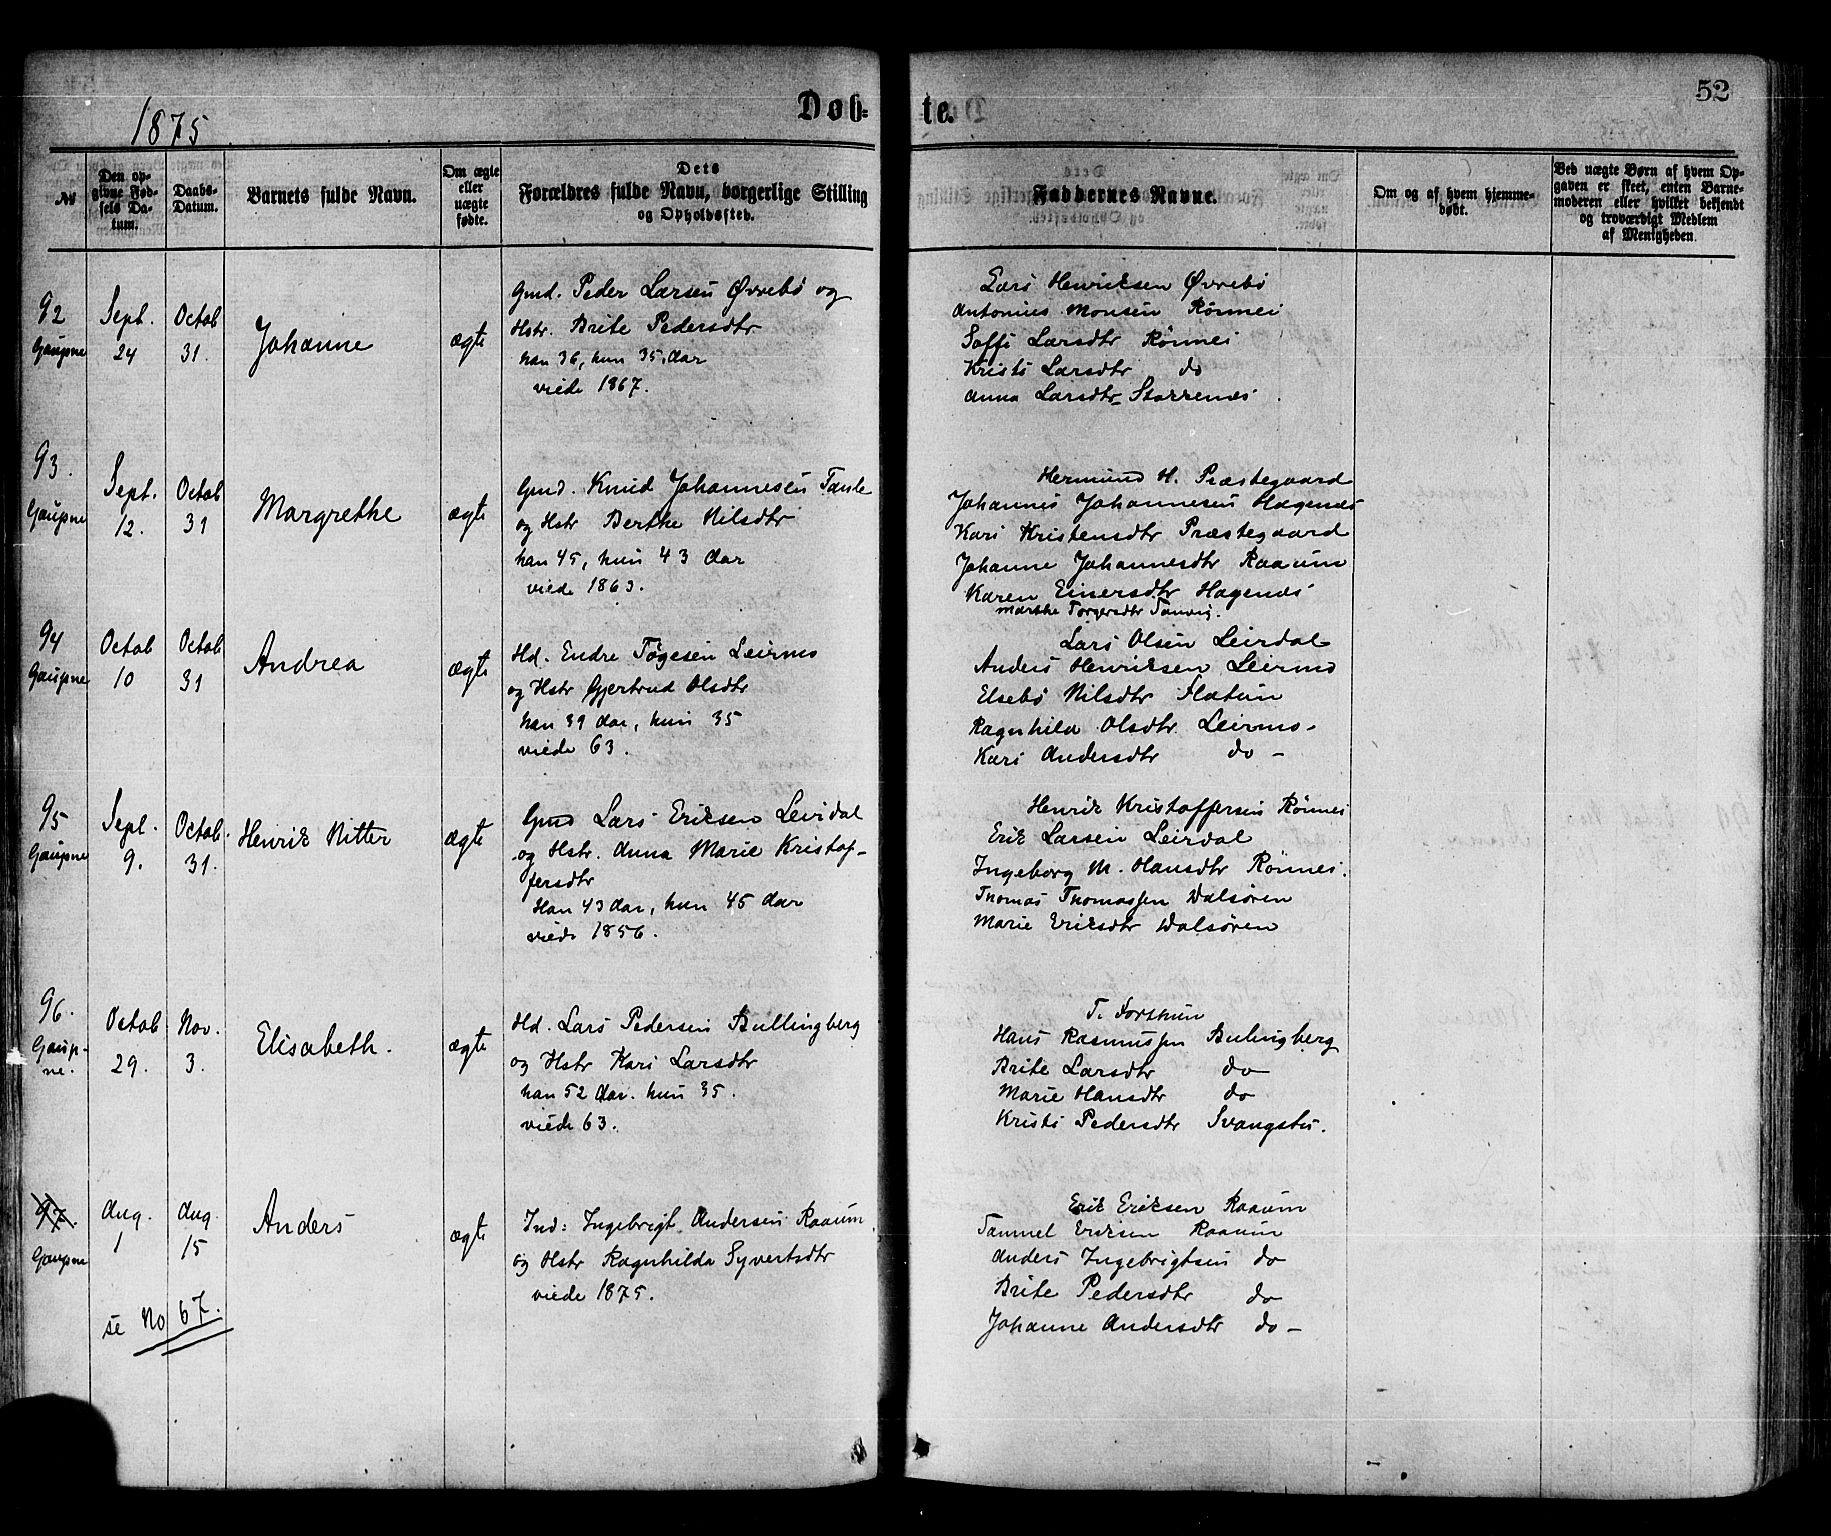 1875
Døb-
te.
52
No
Den op-
givne Fød-
sels Da-
tum.
Daabs-
Datum.
Barnets fulde Navn.
Om ægte
eller
uægte
fødte.
Dets
Forældres fulde Navn, borgerlige Stilling
og Opholdssted.
Faddernes Navne.
Om og af hvem hjemme-
døbt.
Ved uægte Børn af hvem Op-
gaven er skeet, enten Barne-
moderen eller hvilket bekjendt
og troværdigt Medlem
af Menigheden.
92
Gaupne
Sept.
24
Octob
31.
Johanne
ægte
Gmd. Peder Larsen Øvrebø og
Hstr. Brite Pedersdtr
han 36, hun 35, Aar
viede 1867.
Lars Henriksen Øvrebø
Antonius Monsen Rönnei
Soffi Larsdtr Rönnei
Kristi Larsdtr do
Anna Larsdtr
93.
Gaupne
Sept.
12.
Octob
31
Margrethe
ægte
Gmd. Knud Johannesen
og Hstr Berthe Nilsdtr
han 45, hun 43 Aar
viede 1863.
Hermund H. Præstegaard
Johannes Johannesen Hagenæs
Kari Kristensdtr Præstegaard
Johanne Johannesdtr Raaum
Karen Einersdtr Hagenæs
Marthe Torgersdtr
94
Gaupne
Octob
10
Octob
31
Andrea
ægte
Hd. Endre Tøgesen Leirmo
og Hstr Gjertrud Olsdtr
han 39 Aar, hun 35
viede 63.
Lars Olsen Leirdal
Anders Henriksen Leirmo
Elsebø Nilsdtr Flatun
Ragnhild Olsdtr Leirmo-
Kari Andersdtr do -
95
Gaupne
Sept.
9.
Octob.
31.
Henrik Nitter
ægte
Gmd Lars Eriksen Leirdal
og Hstr. Anna Marie Kristof-
fersdtr
Han 43 Aar, hun 45 Aar
viede 1856.
Henrik Kristoffersen Rönnei
Erik Larsen Leirdal
Ingeborg M. Hansdtr Rönnei.
Thomas Thomassen Dalsören
Marie Eriksdtr Dalsören
96.
Gaup-
ne.
Octob
29.
Nov.
3.
Elisabeth.
ægte
Hd. Lars Pedersen Bullingberg
og Hstr Kari Larsdtr
han 52 Aar. hun 35.
viede 63.
T. Forthun
Hans Rasmussen Bulingberg
Brite Larsdtr do
Marie Hansdtr do
Kristi Pedersdtr
97.
Gaupne
Aug.
1
Aug.
15
Anders
ægte
Ind: Ingebrigt Andersen Raaum
og Hstr Ragnhilda Syvertsdtr
viede 1875.
Erik Eriksen Raaum
Samuel Eriksen Raaum
Anders Ingebrigtsen do
Brite Pedersdtr do
Johanne Andersdtr do -
se No 67.